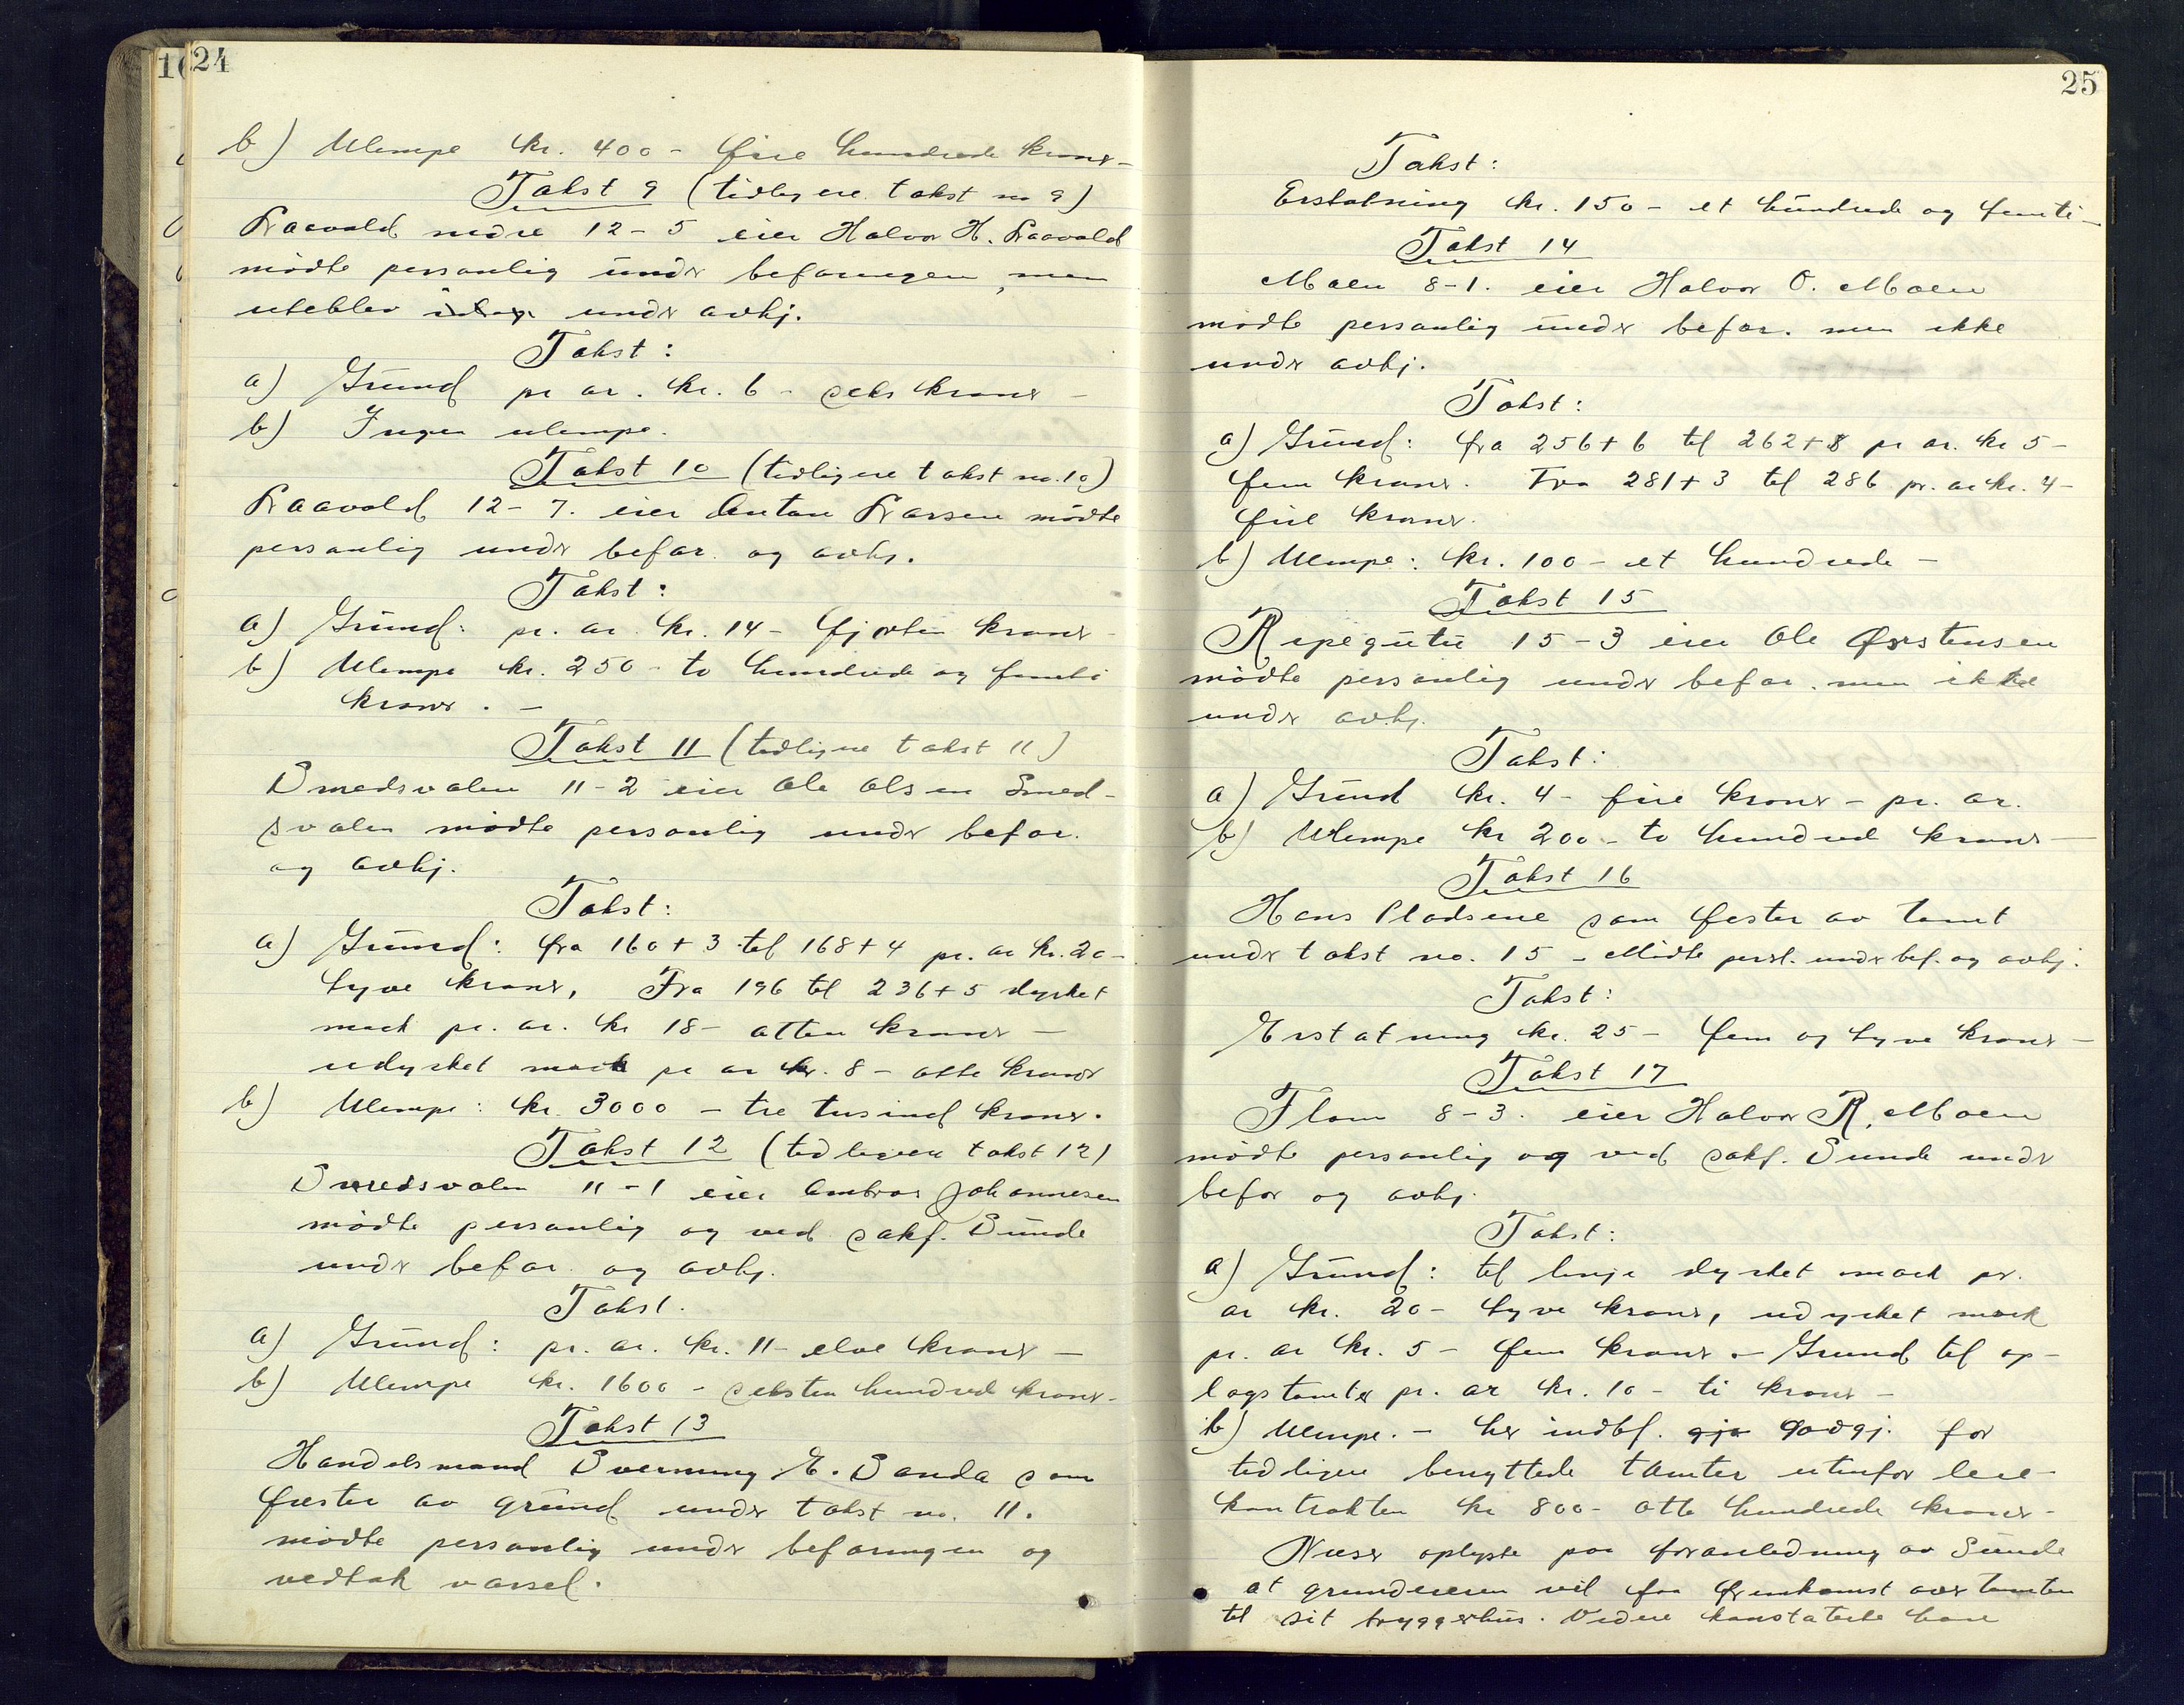 24
b) Ulempe kr. 400 - fire hundrede kroner -
Takst 9 (tidligere takst no 9)
Laavald nedre 12-5 eier Halvor H. Laavald
mødte personlig under befaringen, men
uteblev idag under avhj.
Takst:
a) Grund pr ar. kr. 6 - seks kroner -
b) Ingen ulempe.
Takst 10 (tidligere takst no. 10)
Laavald 12-7. eier Anton Larsen mødte
personlig under befar. og avhj.
Takst:
a) Grund: pr. ar. kr. 14 - fjorten kroner -
b) Ulempe kr. 250 - to hundrede og femti
kroner. -
Takst 11 (tidligere takst 11)
Smedsvalen 11-2 eier Ole Olsen Smed-
svalen mødte personlig under befar.
og avhj.
Takst:
a) Grund: fra 160+3 til 168+4 pr. ar kr. 20 -
tyve kroner, Fra 196 til 236+5 dyrket
mark pr. ar. kr 18 - atten kroner -
udyrket mark pr ar kr. 8 - otte kroner
b) Ulempe: kr. 3000 - tre tusind kroner.
Takst 12 (tidligere takst 12)
Smedsvalen 11-1 eier Ambros Johannesen
mødte personlig og ved sakf. Sunde
under befar. og avhj.
Takst.
a) Grund: pr. ar. kr. 11 - elve kroner -
b) Ulempe kr. 1600 - seksten hundred kroner -
Takst 13
Handelsmand Sverning E. Sanda som
fæster av grund under takst no. 11.
mødte personlig under befaringen og
vedtok varsel.
25
Takst:
Erstatning kr. 150 - et hundrede og femti -
Takst 14
Moen 8-1. eier Halvor O. Moen
mødte personlig under befar. men ikke
under avhj.
Takst:
a) Grund: fra 256+6 til 262+8 pr ar. kr 5 -
fem kroner. Fra 281+3 til 286 pr. ar kr. 4 -
fire kroner.
b) Ulempe: kr. 100 - et hundrede -
Takst 15
Ripegutu 15-3 eier Ole Østensen
mødte personlig under befar. men ikke
under avhj.
Takst:
a) Grund kr. 4 - fire kroner - pr. ar.
b) Ulempe kr 200 - to hundred kroner -
Takst 16
Hans Pladsene som fester av tomt
under takst no. 15 - Mødte persl. under bef. og avhj.
Takst:
Erstatning kr. 25 - fem og tyve kroner -
Takst 17
Flom 8-3. eier Halvor R. Moen
mødte personlig og ved sakf. Sunde under
befar og avhj.
Takst:
a) Grund: til linje dyrket mark pr.
ar kr. 20 - tyve kroner, udyrket mark
pr. ar kr. 5 - fem kroner. - Grund til op-
lagstomter pr. ar kr. 10 - ti kroner -
b) Ulempe. - her indbf. gjo godgj. for
tidligere benyttede tomter utenfor leie-
kontrakten kr 800 - otte hundrede kroner -
oplyste paa foranledning av Sunde
at grundeieren vil faa fremkomst over tomten
til sit bryggerhus. Videre konstaterte han